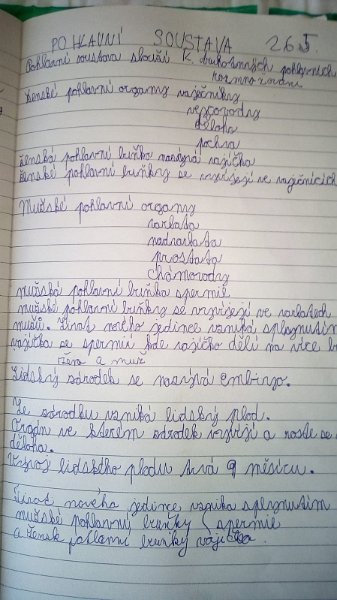 POHLAVNÍ SOUSTAVA 26.5
Pohlavní soustava slouží k pohlavních
rozmnožování
Ženské pohlavní orgamy vaječníky
vejcovody
děloha
pochva
Ženská pohlavní buňka nazývá vajíčko
Ženské pohlavní buňky se vyvíjejí ve vaječnících
Mužské pohlavní orgamy
varlata
nadvarlata
prostata
chámovody
mužská pohlavní buňka spermie
mužské pohlavní buňky se vyvíjejí ve varlatech
mužů. Život nového jedince vzniká splynutím
vajíčka se spermií kde vajíčko dělí na více b
žena a muž
Lidský zárodek se nazývá embryo.
Ze zárodku vzniká lidský plod.
Orgám ve kterém zárodek vyvíjí a roste se
děloha.
Vývoj lidského plodu trvá 9 měsícu.
Život nového jedince vznika splynutím
mužské pohlavný buňky spermie
a žensk pohlavní buňky